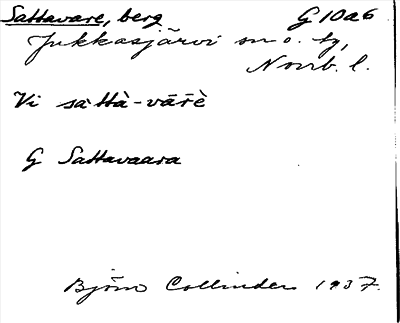 Sattavare, berg G 10a6
Jukkasjärvi sn o. tg,
Norrb. l.
Vi sa·ttà-vār̄è
G Sattavaara
Björn Collinder 1937.